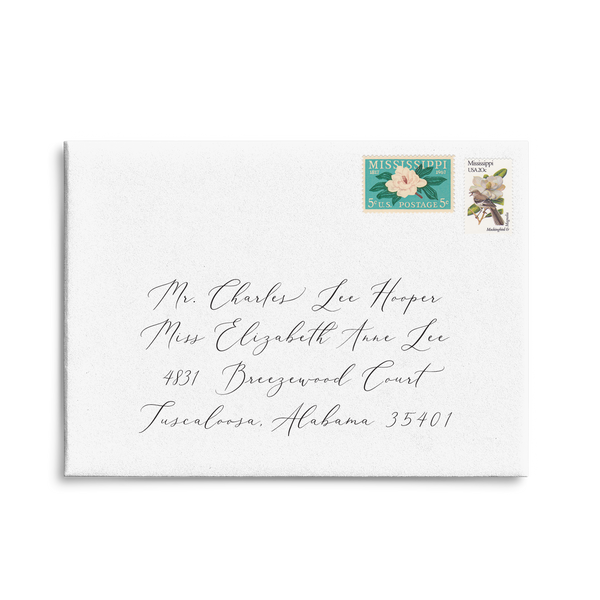 MISSISSIPPI
1817 1967
5c U.S. POSTAGE 5c
Mississippi
USA 20c
Mockingbird &
Magnolia
Mr. Charles Lee Hooper
Miss Elizabeth Anne Lee
4831 Breezewood Court
Tuscaloosa, Alabama 35401